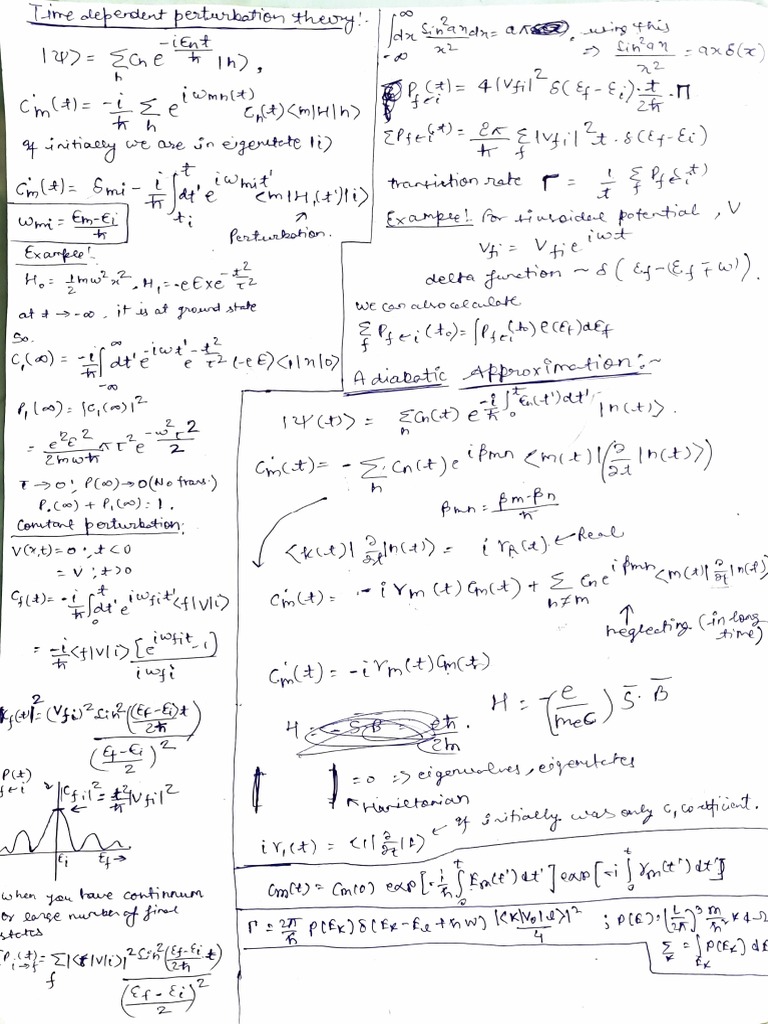 Time dependent perturbation theory!-
|Ψ⟩ = Σ_n Cn e^{-iEnt/ħ} |n⟩,
Ċm(t) = -i/ħ Σ_n e^{iωmn(t)} Cn(t) <m|H|n⟩
If initially we are in eigenstate |i⟩
Ċm(t) = δmi - i/ħ ∫_{ti}^{t} dt' e^{iωmit'} <m|H₁(t')|i⟩
ωmi = Em-Ei/ħ
Perturbation.
Example!
H₀ = 1/2 mω²x², H₁ = -eExe^{-t²/τ²}
at t → -∞, it is at ground state
So.
C₁(∞) = -i/ħ ∫_{-∞}^{∞} dt' e^{-iωt'} e^{-t²/τ²} (-eE) <1|x|0⟩
P₁(∞) = |C₁(∞)|²
= e²ε²/2mωħ πτ² e^{-ω²τ²/2}
τ → 0!, P(∞) → 0 (No trans.)
P₀(∞) + P₁(∞) = 1.
Constant perturbation:
V(x,t) = 0 ; t < 0
= V ; t > 0
Cf(t) = -i/ħ ∫_0^t dt' e^{iωfit'} <f|V|i⟩
= -i/ħ <f|V|i⟩ [e^{iωfit} - 1]/iωfi
|Cf(t)|² = (Vfi)² Sin²((Ef-Ei)t/2ħ) / (Ef-Ei/2)²
P(t) f←i
|Cfi|² = t²/ħ² |Vfi|²
Ei Ef →
when you have continuum
or large number of final
states
P_{i→f}(t) = Σ_f |<f|V|i⟩|² Sin²(Ef-Ei/2ħ t) / (Ef-Ei/2)²
∫_{-∞}^{∞} dx Sin²ax/x² dx = aπ, using this
⇒ Sin²ax/x² = aπδ(x)
P_{f←i}(t) = 4|Vfi|² δ(Ef-Ei)·t/2ħ·Π
ΣP_{f←i}(t) = 2π/ħ Σ_f |Vfi|² t·δ(Ef-Ei)
transition rate Γ = 1/t Σ_f P_{f←i}(t)
Example! for sinusoidal potential, V
Vfi = Vfi e^{iωt}
delta function ~ δ(Ef-(Ef∓ω)).
we can also calculate
Σ_f P_{f←i}(t₀) = ∫P_{f←i}(t₀) ρ(Ef) dEf
Adiabatic Approximation:~
|Ψ(t)⟩ = Σ_n Cn(t) e^{-i/ħ ∫_0^t En(t')dt'} |n(t)⟩.
Ċm(t) = -Σ_n Cn(t) e^{iβmn} <m(t)|(∂/∂t |n(t)⟩)
βmn = βm-βn/ħ
<k(t)|∂/∂t|n(t)⟩ = iγR(t) ← Real
Ċm(t) = -iγm(t) Cm(t) + Σ_{n≠m} Cn e^{iβmn} <m(t)|∂/∂t|n(t)⟩
neglecting (in long
time)
Ċm(t) = -iγm(t) Cm(t)
H = -(e/mec) S̄·B̄
| | = 0 ⇒ eigenvalues, eigenstates
Hamiltonian
iγ₁(t) = <1|∂/∂t|1⟩ ← If initially was only C₁ coefficient.
Cm(t) = Cm(0) exp[-i/ħ ∫_0^t Em(t')dt'] exp[-i ∫_0^t γm(t')dt']
Γ = 2π/ħ ρ(Ek) δ(Ek-El+ħω) |<k|V₀|l⟩|²/4 ; ρ(E) = (L/2π)³ m/ħ² k dΩ
Σ_k = ∫_{Ek} ρ(Ek) dE